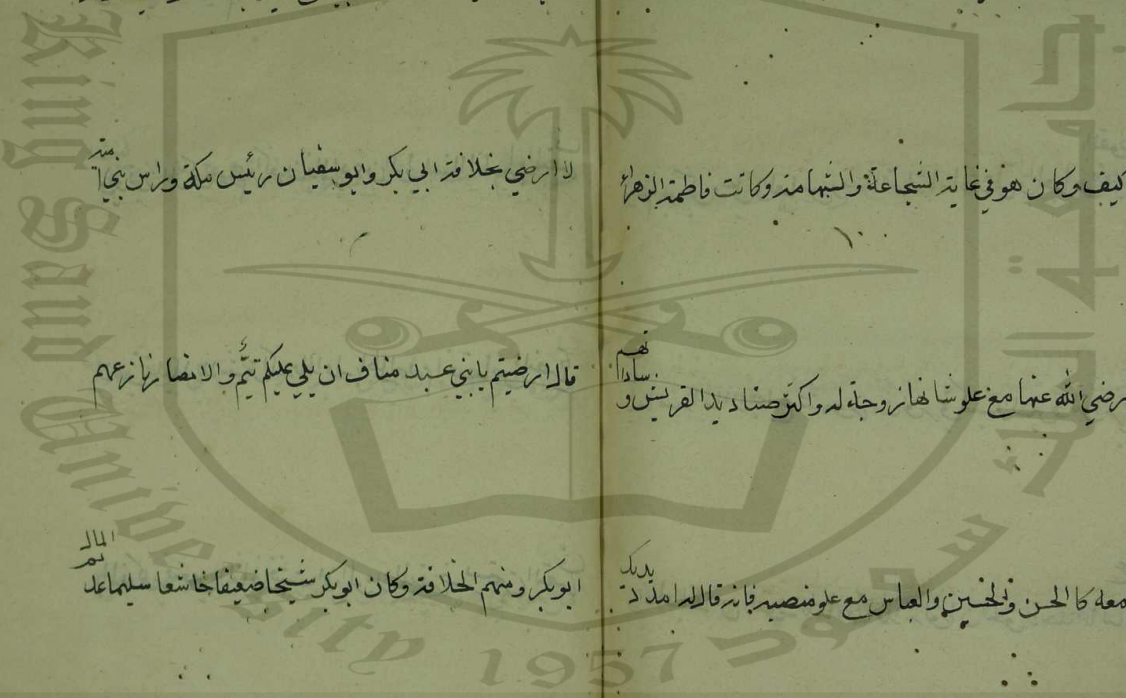 كيف وكان هو في غاية الشجاعة والشهامة وكانت فاطمة الزهراء
رضي الله عنها مع علو شانها زوجة له واكثر صناديد القريش و ساداتهم
معه كالحسن والحسين والعباس مع علو منصبه فانه قال له امدد يدك
لا ارضي بخلافة ابي بكر وابو سفيان رئيس مكة وراس بني امية
قال ارضيتم يا بني عبد مناف ان يلي عليكم تيم والانصار نازعهم
ابو بكر ومنهم الخلافة وكان ابو بكر شيخا ضعيفا خاشعا سليما عديم المال
King Saud University
1957
جامعة الملك سعود